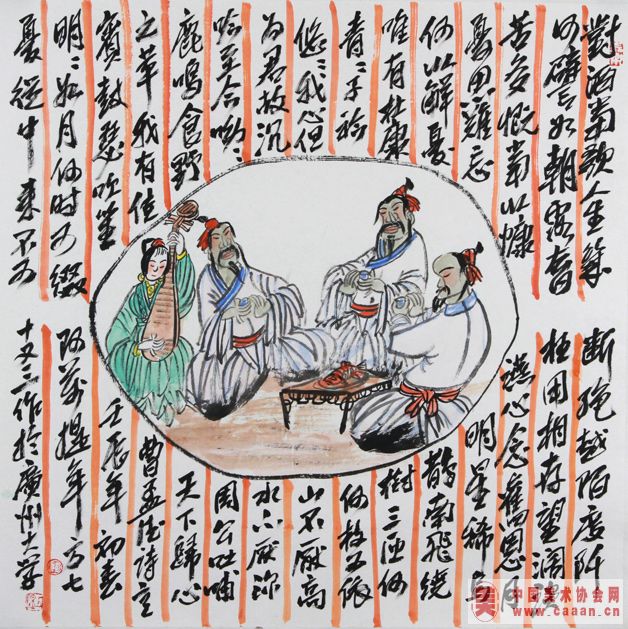 對酒當歌人生幾
何譬如朝露昔
苦多慨當以慷
憂思難忘
何以解憂
唯有杜康
青〻子衿
悠〻我心但
為君故沉
吟至今呦〻
鹿鳴食野
之苹我有佳
賓鼓瑟吹笙
明〻如月何時可掇
憂從中來不可
斷絕越陌度阡
枉用相存望濶
讌心念舊恩
月
明星稀烏
鵲南飛繞
樹三匝何
何枝可依
山不厭高
水不厭深
周公吐哺
天下歸心
曹孟德詩意
壬辰年初春
年方七
十又三作於廣州大學
中国美术协会网
www.caaan.cn